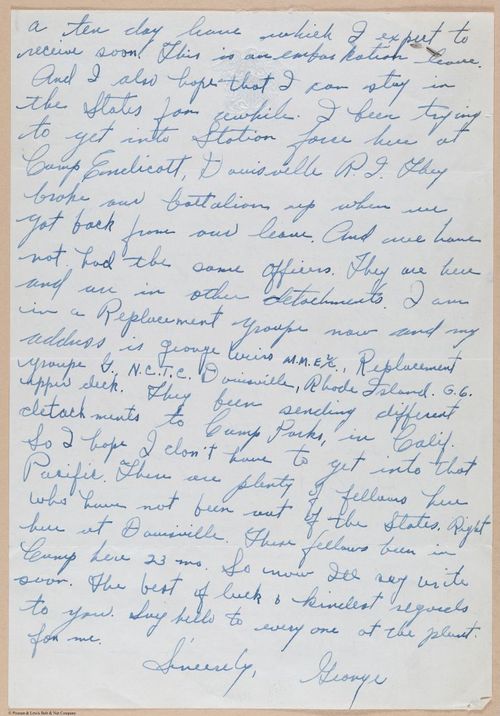 a ten day leave which I expect to
receive soon. This is an embarkation leave.
And I also hope that I can stay in
the States for awhile. I been trying
to get into Station force here at
Camp Endicott, Davisville R.I. They
broke our battalion up when we
got back from our leave. And we have
not had the same officers. They are here
and are in other detachments. I am
in a Replacement groupe now and my
address is George Weiss M.M.E. 2/c., Replacement
groupe G., N.C.T.C. Davisville, Rhode Island. G.6.
upper deck. They been sending different
detachments to Camp Parks, in Calif.
So I hope I don't have to get into that
Pacific. There are plenty of fellows here
who have not been out of the States. Right
here at Davisville. These fellows been in
Camp here 23 mo. So now I'll say write
soon. The best of luck & kindest regards
to you. Say hello to every one at the plant.
for me.
Sincerely, George
© Pheoll & Lewis Bolt & Nut Company